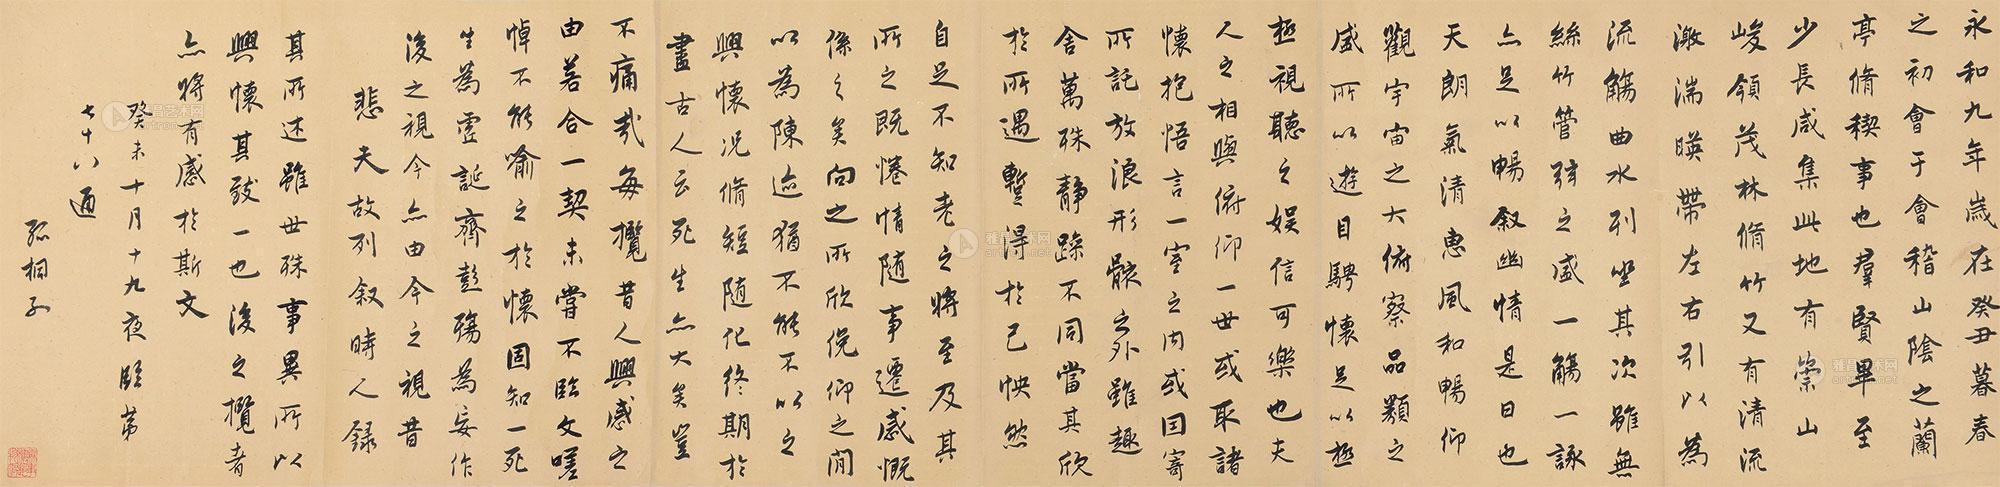 永和九年歲在癸丑暮春
之初會于會稽山陰之蘭
亭脩稧事也羣賢畢至
少長咸集此地有崇山
峻領茂林脩竹又有清流
激湍暎帶左右引以為
流觴曲水列坐其次雖無
絲竹管弦之盛一觴一詠
亦足以暢叙幽情是日也
天朗氣清惠風和暢仰
觀宇宙之大俯察品類之
盛所以遊目騁懷足以極
極視聽之娛信可樂也夫
人之相與俯仰一世或取諸
懷抱悟言一室之內或因寄
所託放浪形骸之外雖趣
舍萬殊靜躁不同當其欣
於所遇暫得於己怏然
自足不知老之將至及其
所之既惓情隨事遷感慨
係之矣向之所欣俛仰之閒
以為陳迹猶不能不以之
興懷況脩短随化終期於
盡古人云死生亦大矣豈
不痛哉每攬昔人興感之
由若合一契未嘗不臨文嗟
悼不能喻之於懷固知一死
生為虛誕齊彭殤為妄作
後之視今亦由今之視昔
悲夫故列叙時人錄
其所述雖世殊事異所以
興懷其致一也後之攬者
亦將有感於斯文
癸未十月十九夜臨第
七十八通
孤桐子